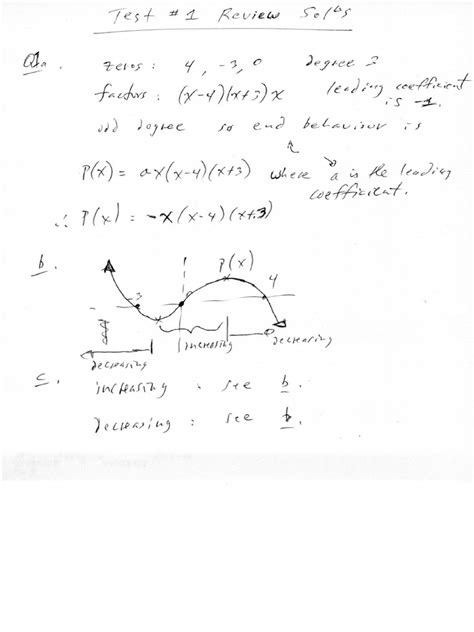 Test #1 Review Solns
Q1a. zeros: 4, -3, 0 degree 3
factors: (x-4)(x+3)x leading coefficient is -1.
odd degree so end behaviour is
P(x) = ax(x-4)(x+3) where a is the leading coefficient.
∴ P(x) = -x(x-4)(x+3)
b. P(x)
-3 4
decreasing increasing decreasing
c. increasing : see b.
decreasing : see b.